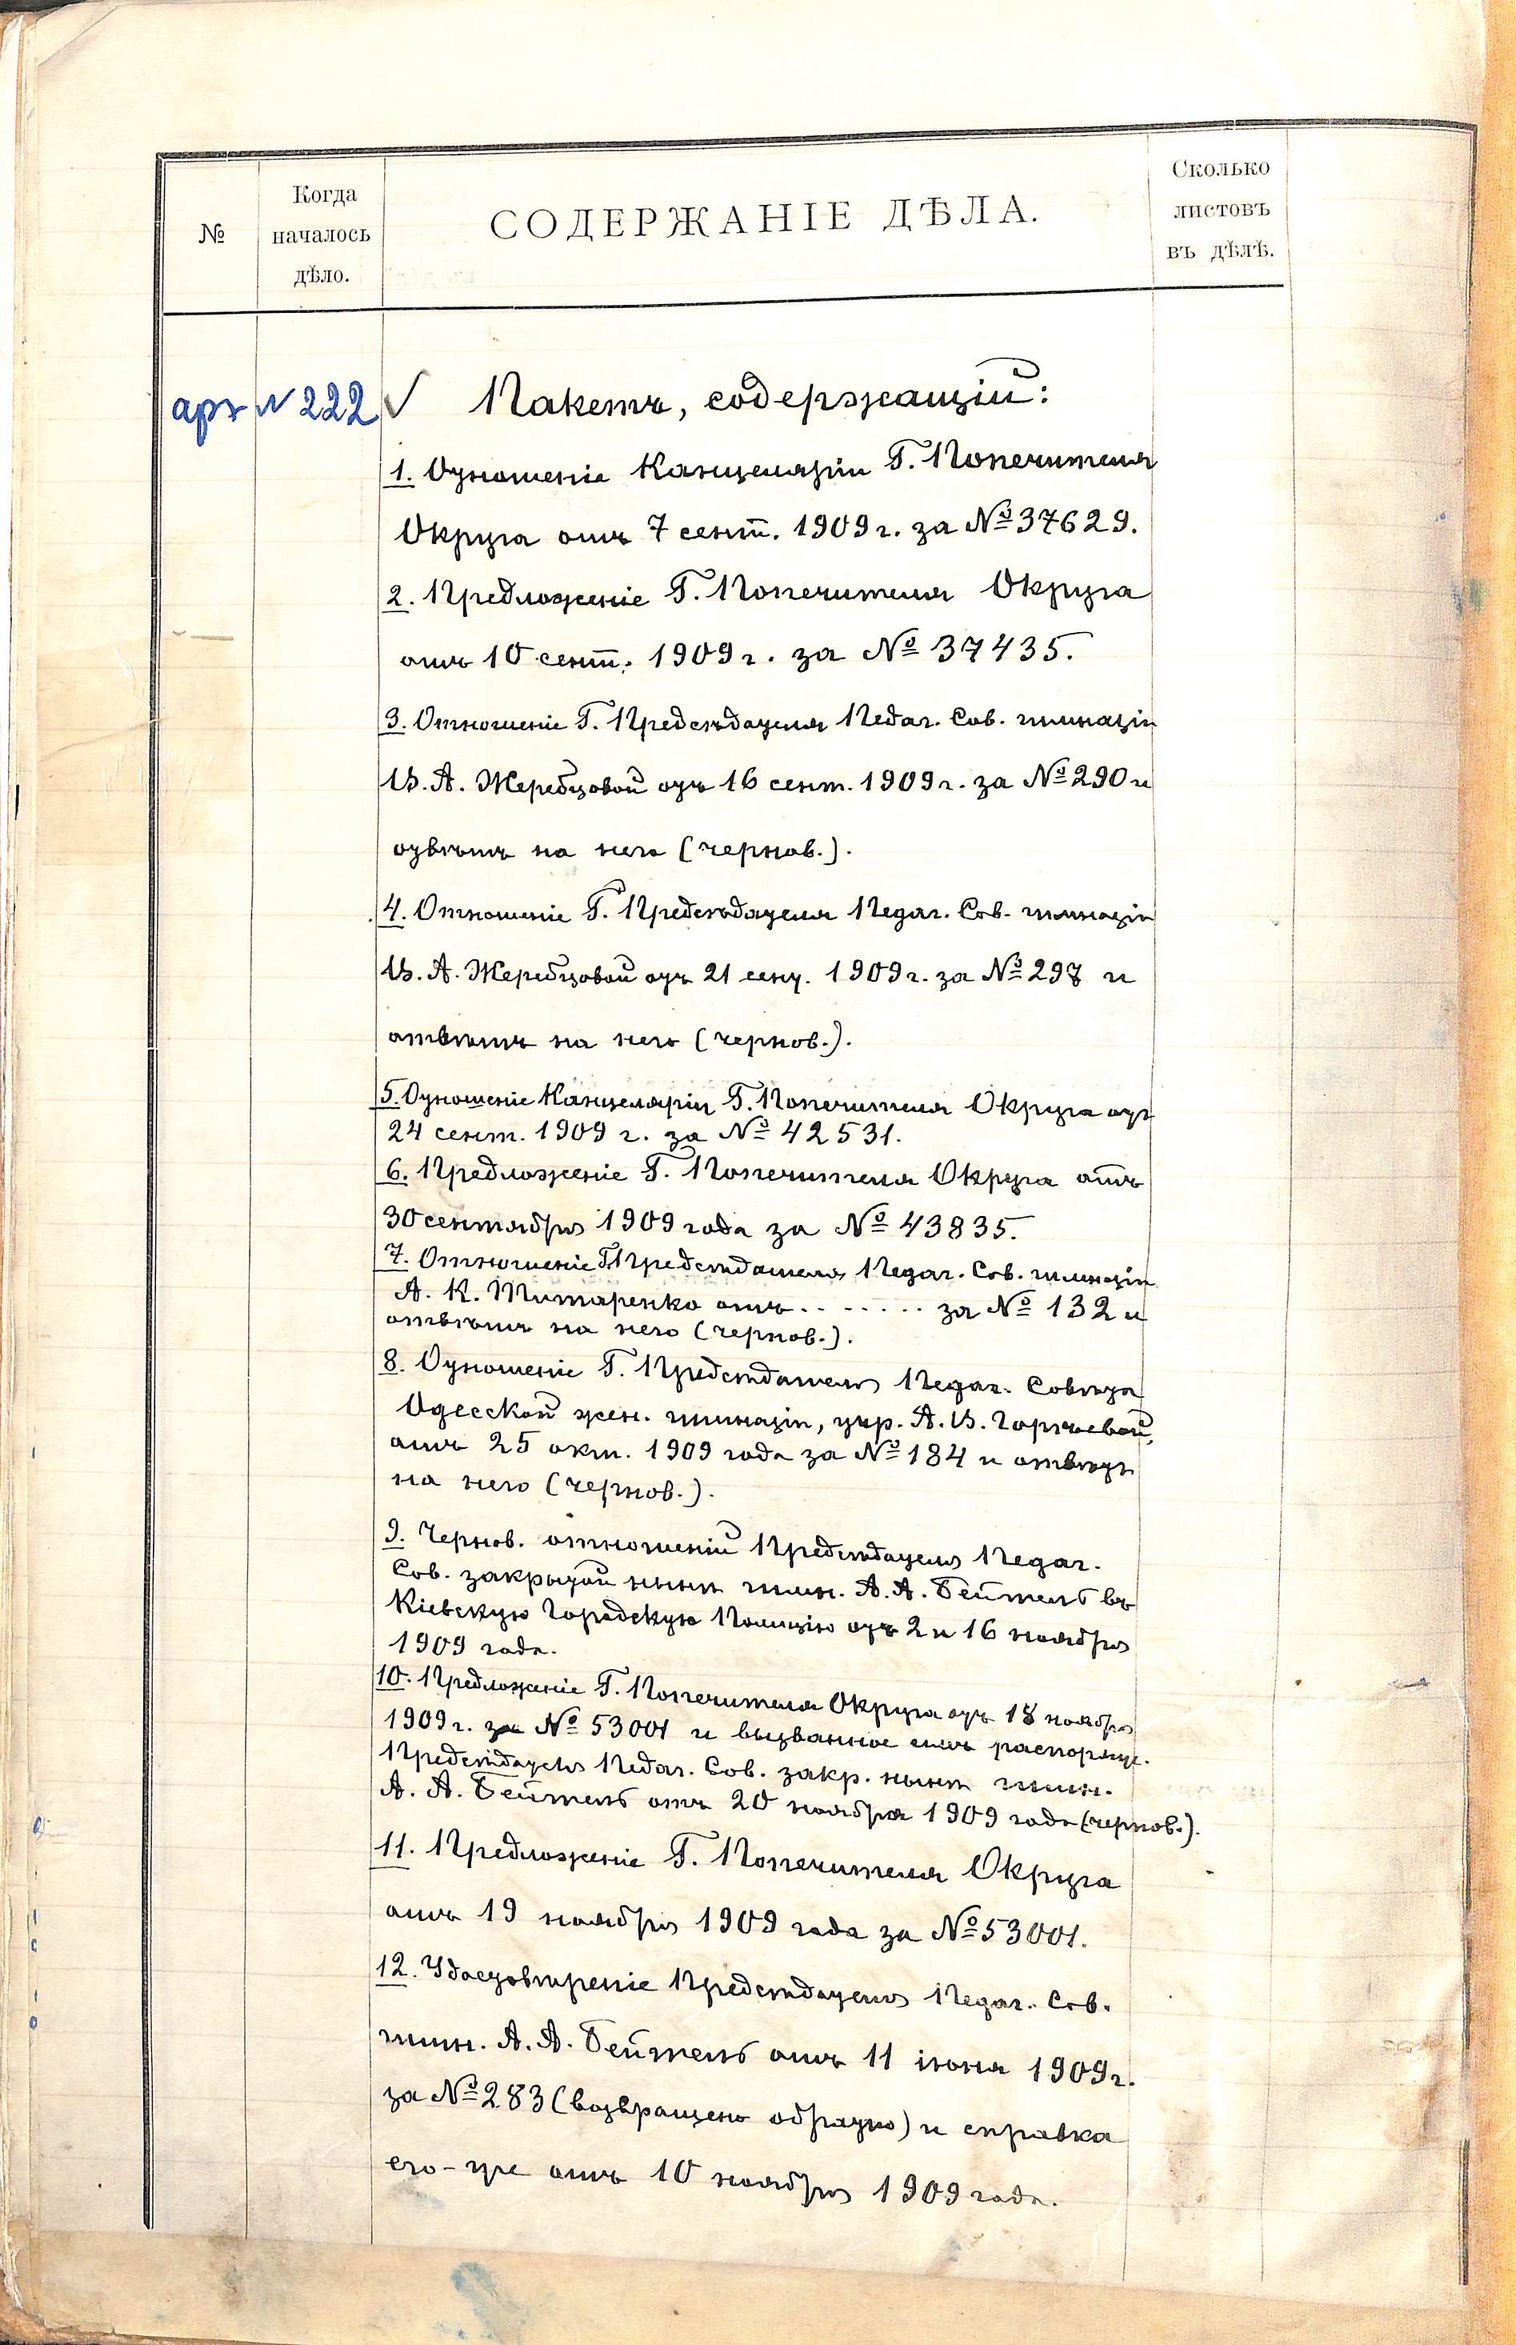 №
Когда
началось
дѣло.
СОДЕРЖАНІЕ ДѢЛА.
Сколько
листовъ
въ дѣлѣ.
арх N 222 ✓ Пакетъ, содержащій:
1. Отношеніе Канцеляріи Г. Попечителя
Округа отъ 7 сент. 1909 г. за № 37629.
2. Предложеніе Г. Попечителя Округа
отъ 10 сент. 1909 г. за № 37435.
3. Отношеніе Г. Предсѣдателя Педаг. Сов. гимназіи
В. А. Жеребцовой отъ 16 сент. 1909 г. за № 290 и
отвѣтъ на него (чернов.).
4. Отношеніе Г. Предсѣдателя Педаг. Сов. гимназіи
В. А. Жеребцовой отъ 21 сент. 1909 г. за № 297 и
отвѣтъ на него (чернов.).
5. Отношеніе Канцеляріи Г. Попечителя Округа отъ
24 сент. 1909 г. за № 42531.
6. Предложеніе Г. Попечителя Округа отъ
30 сентября 1909 года за № 43835.
7. Отношеніе Г. Предсѣдателя Педаг. Сов. гимназіи
А. К. Титаренко отъ . . . . . . . за № 132 и
отвѣтъ на него (чернов.).
8. Отношеніе Г. Предсѣдателя Педаг. Совѣта
Одесской жен. гимназіи, учр. А. В.
отъ 25 окт. 1909 года за № 184 и отвѣтъ
на него (чернов.).
9. Чернов. отношеній Предсѣдателя Педаг.
Сов. закрытой нынѣ гимн. А. А. Бейтель въ
Кіевскую Городскую Полицію отъ 2 и 16 ноября
1909 года.
10. Предложеніе Г. Попечителя Округа отъ 18 ноября
1909 г. за № 53001 и вызванное имъ распоряж.
Предсѣдателя Педаг. Сов. закр. нынѣ гимн.
А. А. Бейтель отъ 20 ноября 1909 года (чернов.).
11. Предложеніе Г. Попечителя Округа
отъ 19 ноября 1909 года за № 53001.
12. Удостовѣреніе Предсѣдателя Педаг. Сов.
гимн. А. А. Бейтель отъ 11 іюня 1909 г.
за № 283 (возвращено обратно) и справка
его-же отъ 10 ноября 1909 года.